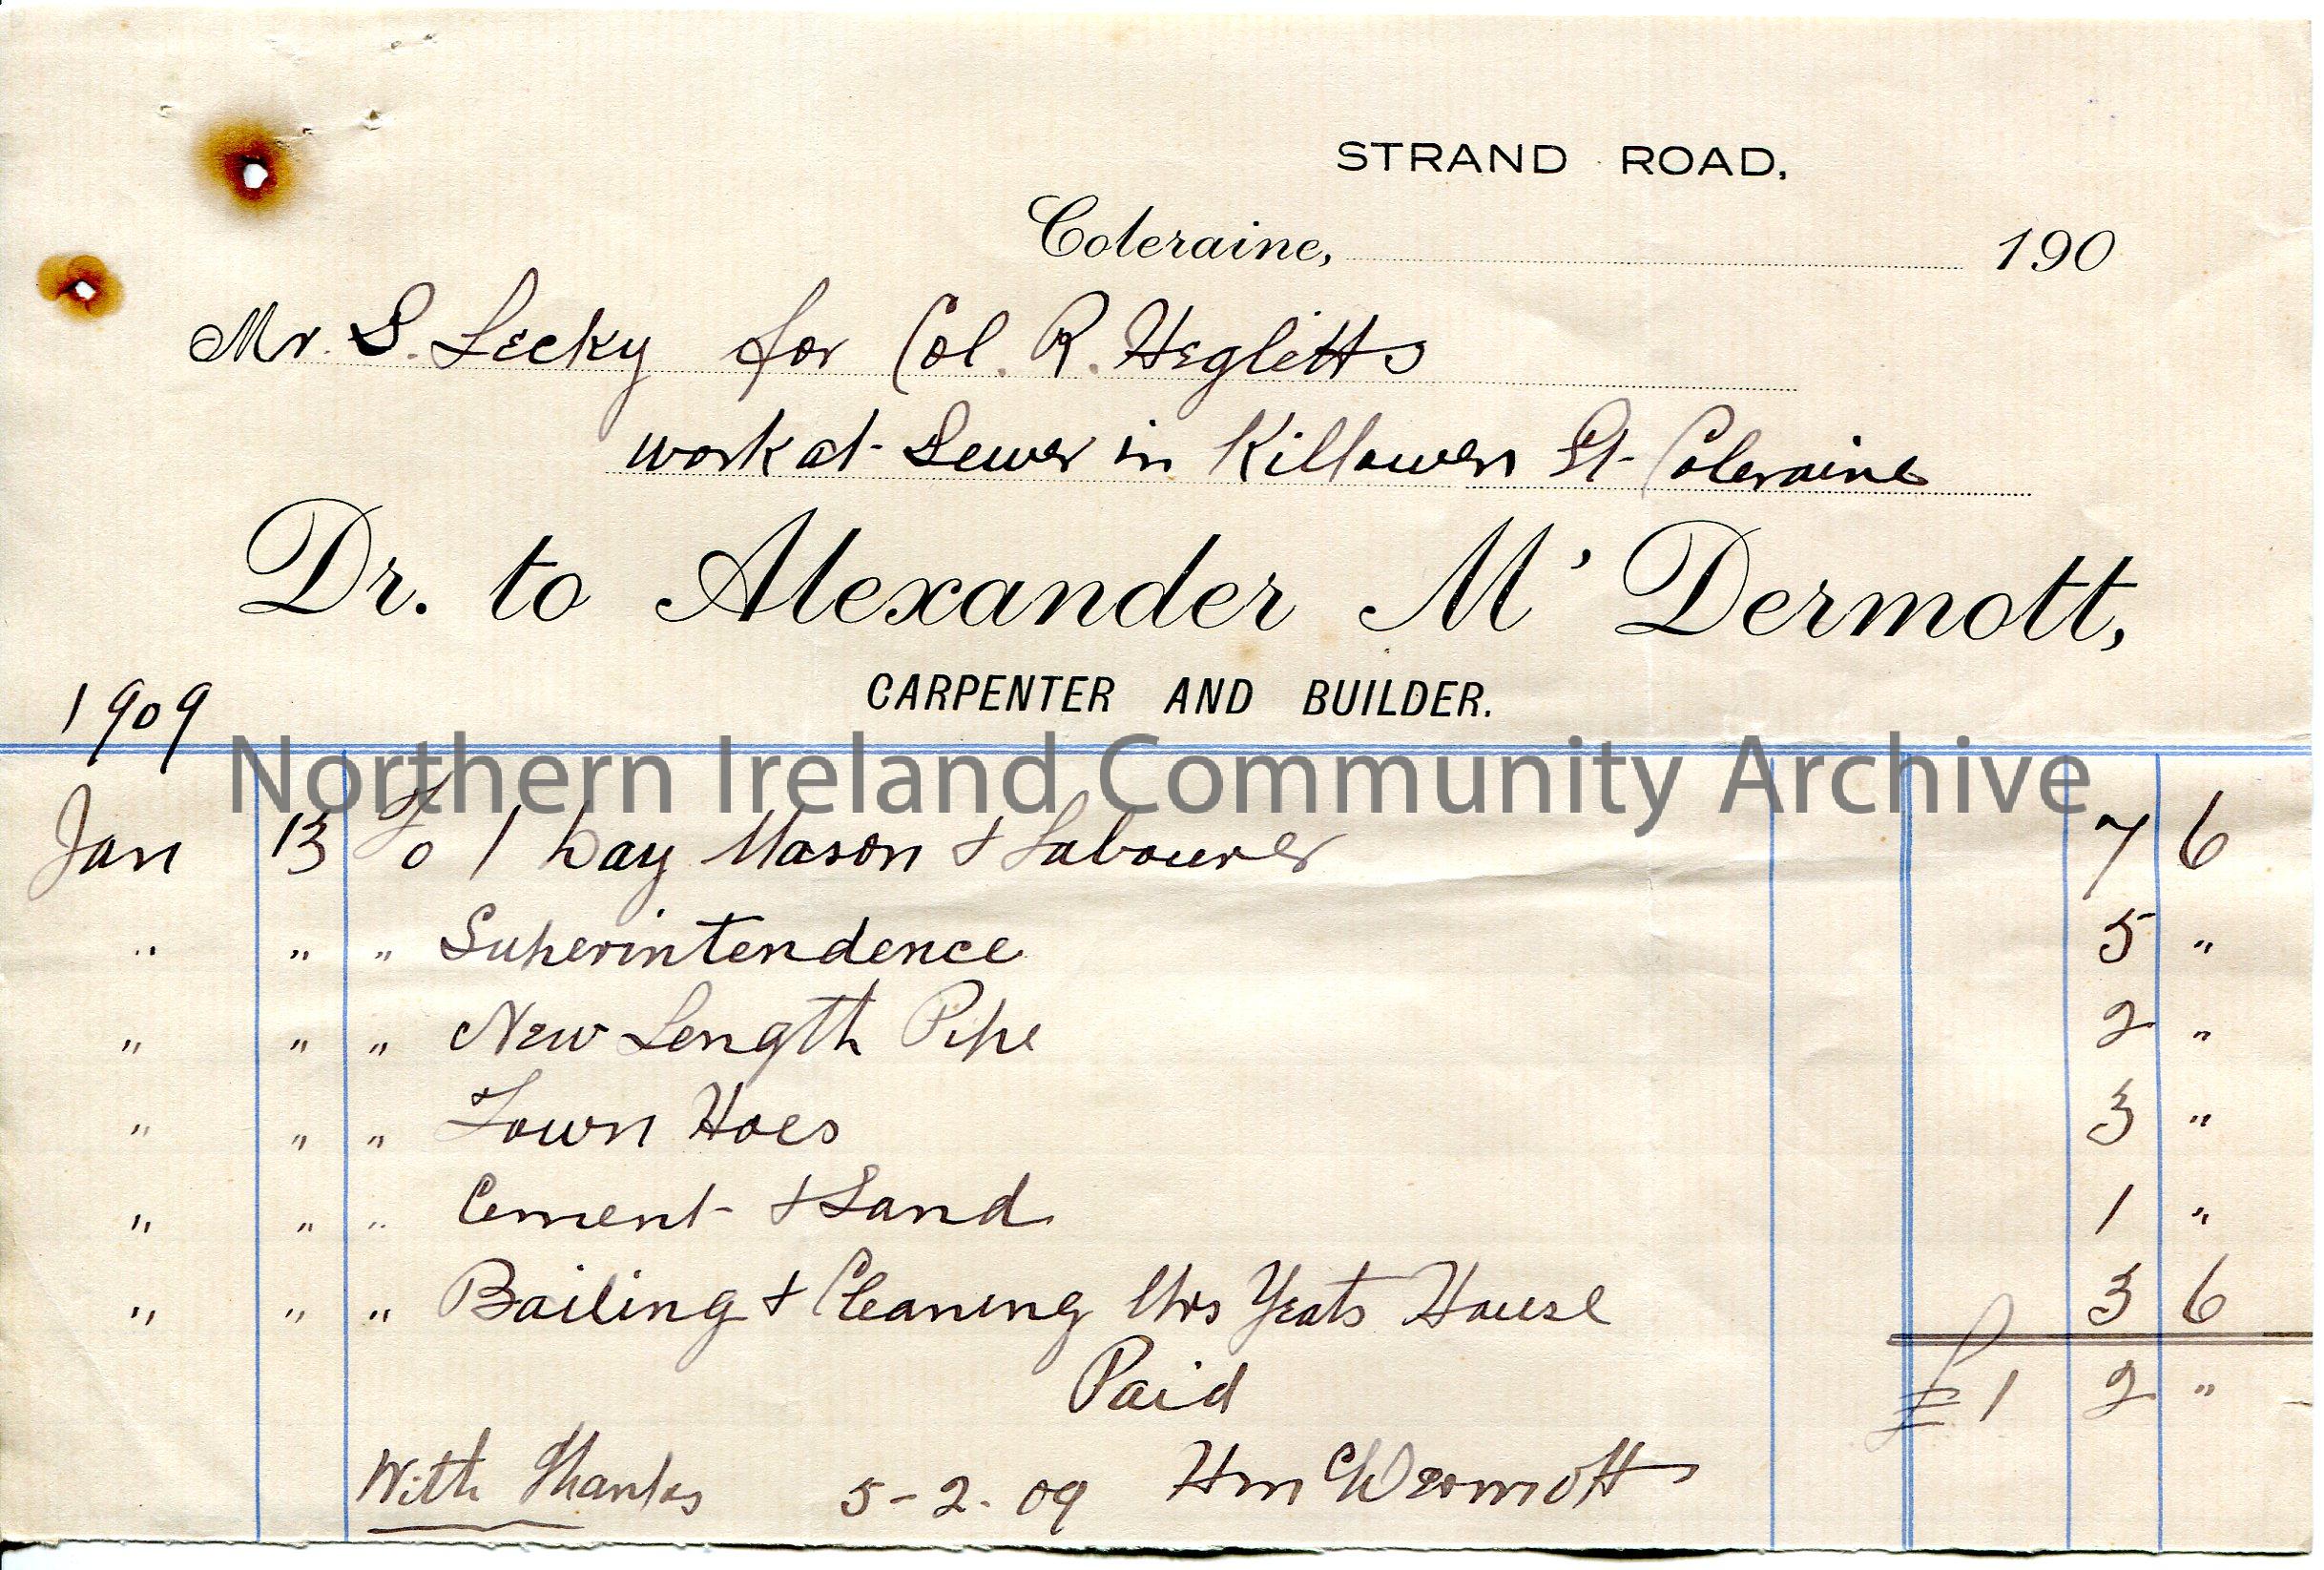 STRAND ROAD,
Coleraine, 190
Mr. S. Lecky for Col. R. Heglitts
work at Sewer in Killowen St Coleraine
Dr. to Alexander M'Dermott,
CARPENTER AND BUILDER.
1909
Northern Ireland Community Archive
Jan 13 To 1 Day Mason & Labourer 7 6
" " " Superintendence 5 "
" " " New Length Pipe 2 "
" " " Town Hoes 3 "
" " " Cement & Sand 1 "
" " " Bailing & Cleaning Mrs Yeats House 3 6
Paid £1 2 "
With Thanks 5-2-09 McDermott